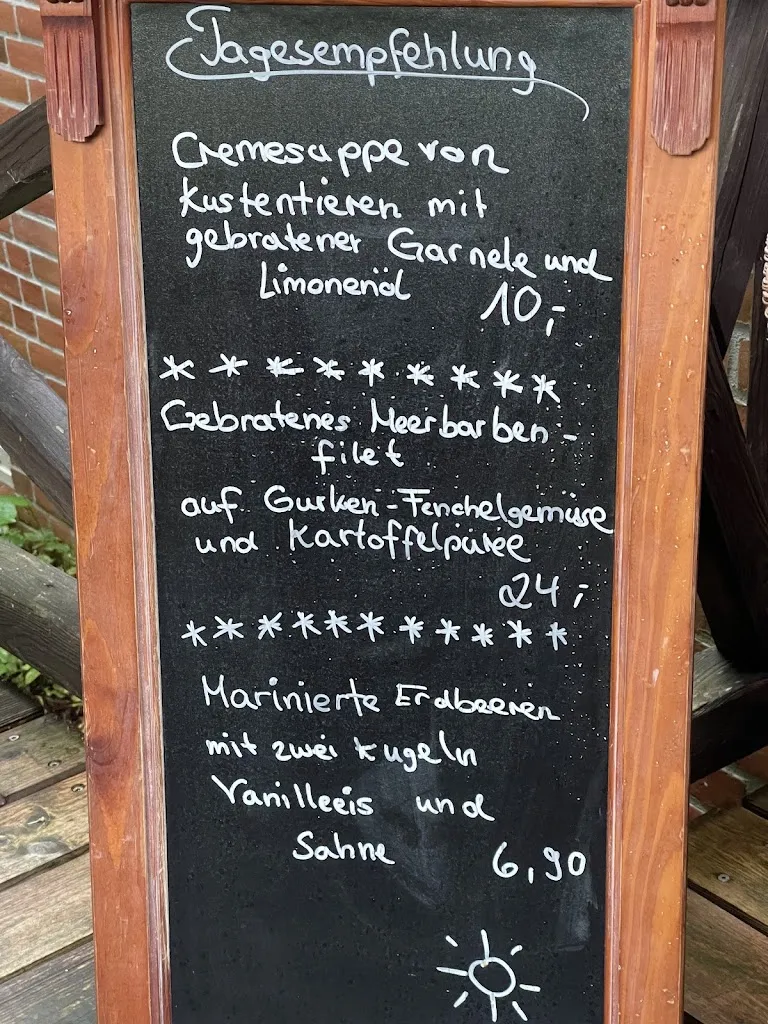 Tagesempfehlung
Cremesuppe von
Kustentieren mit
gebratener Garnele und
Limonenöl 10,-
* * * * * * * * *
Gebratenes Meerbarben-
filet
auf Gurken-Fenchelgemüse
und Kartoffelpüree
24,-
* * * * * * * * * * *
Marinierte Erdbeeren
mit zwei Kugeln
Vanilleeis und
Sahne 6,90